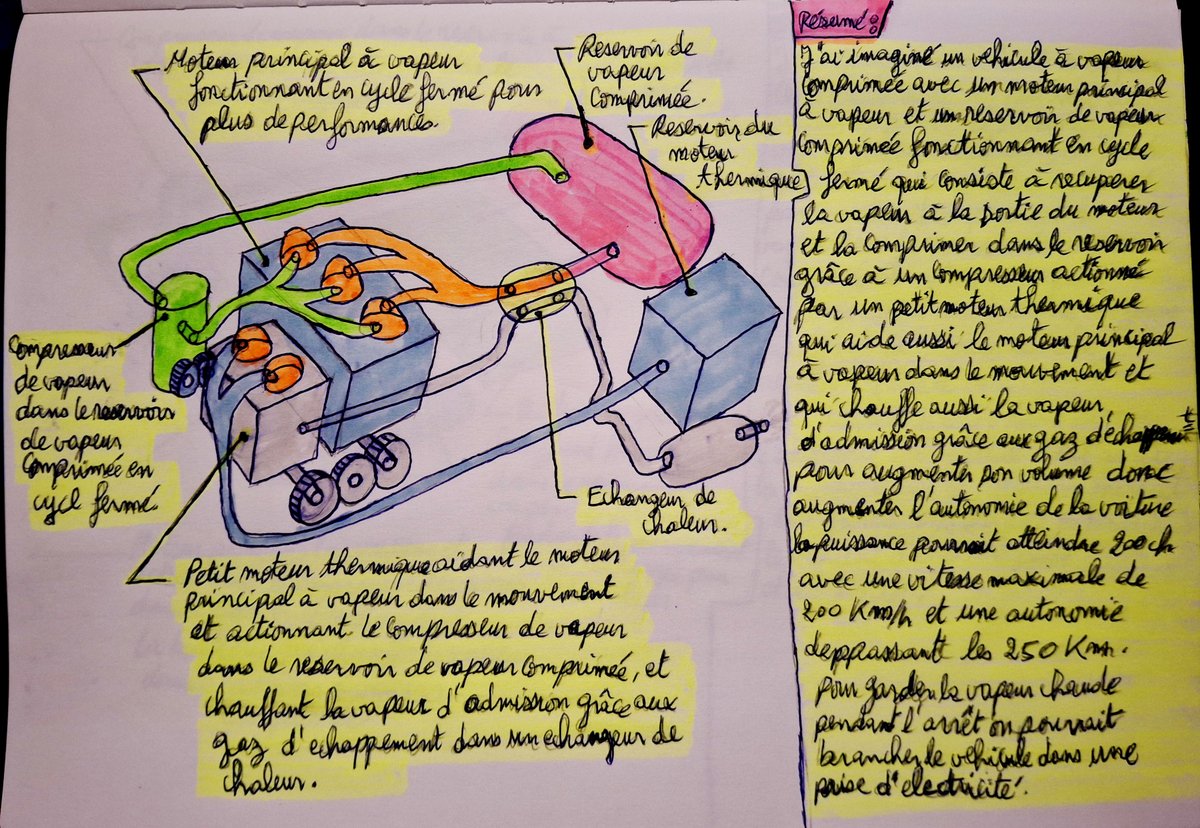 Moteur principal à vapeur
fonctionnant en cycle fermé pour
plus de performances.
Reservoir de
vapeur
comprimée.
Reservoir du
moteur
thermique
Compresseur
de vapeur
dans le reservoir
de vapeur
comprimée en
cycl fermé.
Echangeur de
chaleur.
Petit moteur thermique aidant le moteur
principal à vapeur dans le mouvement
et actionnant le compresseur de vapeur
dans le reservoir de vapeur comprimée, et
chauffant la vapeur d'admission grâce aux
gaz d'echappement dans un echangeur de
chaleur.
Résumé :
J'ai imaginé un vehicule à vapeur
comprimée avec un moteur principal
à vapeur et un reservoir de vapeur
comprimée fonctionnant en cycle
fermé qui consiste à recuperer
la vapeur à la sortie du moteur
et la comprimer dans le reservoir
grâce à un compresseur actionné
par un petit moteur thermique
qui aide aussi le moteur principal
à vapeur dans le mouvement et
qui chauffe aussi la vapeur
d'admission grâce aux gaz d'échappement
pour augmenter son volume donc
augmenter l'autonomie de la voiture
la puissance pourrait atteindre 200 ch
avec une vitesse maximale de
200 Km/h et une autonomie
deppassant les 250 Km.
pour garder la vapeur chaude
pendant l'arrêt on pourrait
brancher le véhicule dans une
prise d'electricité.